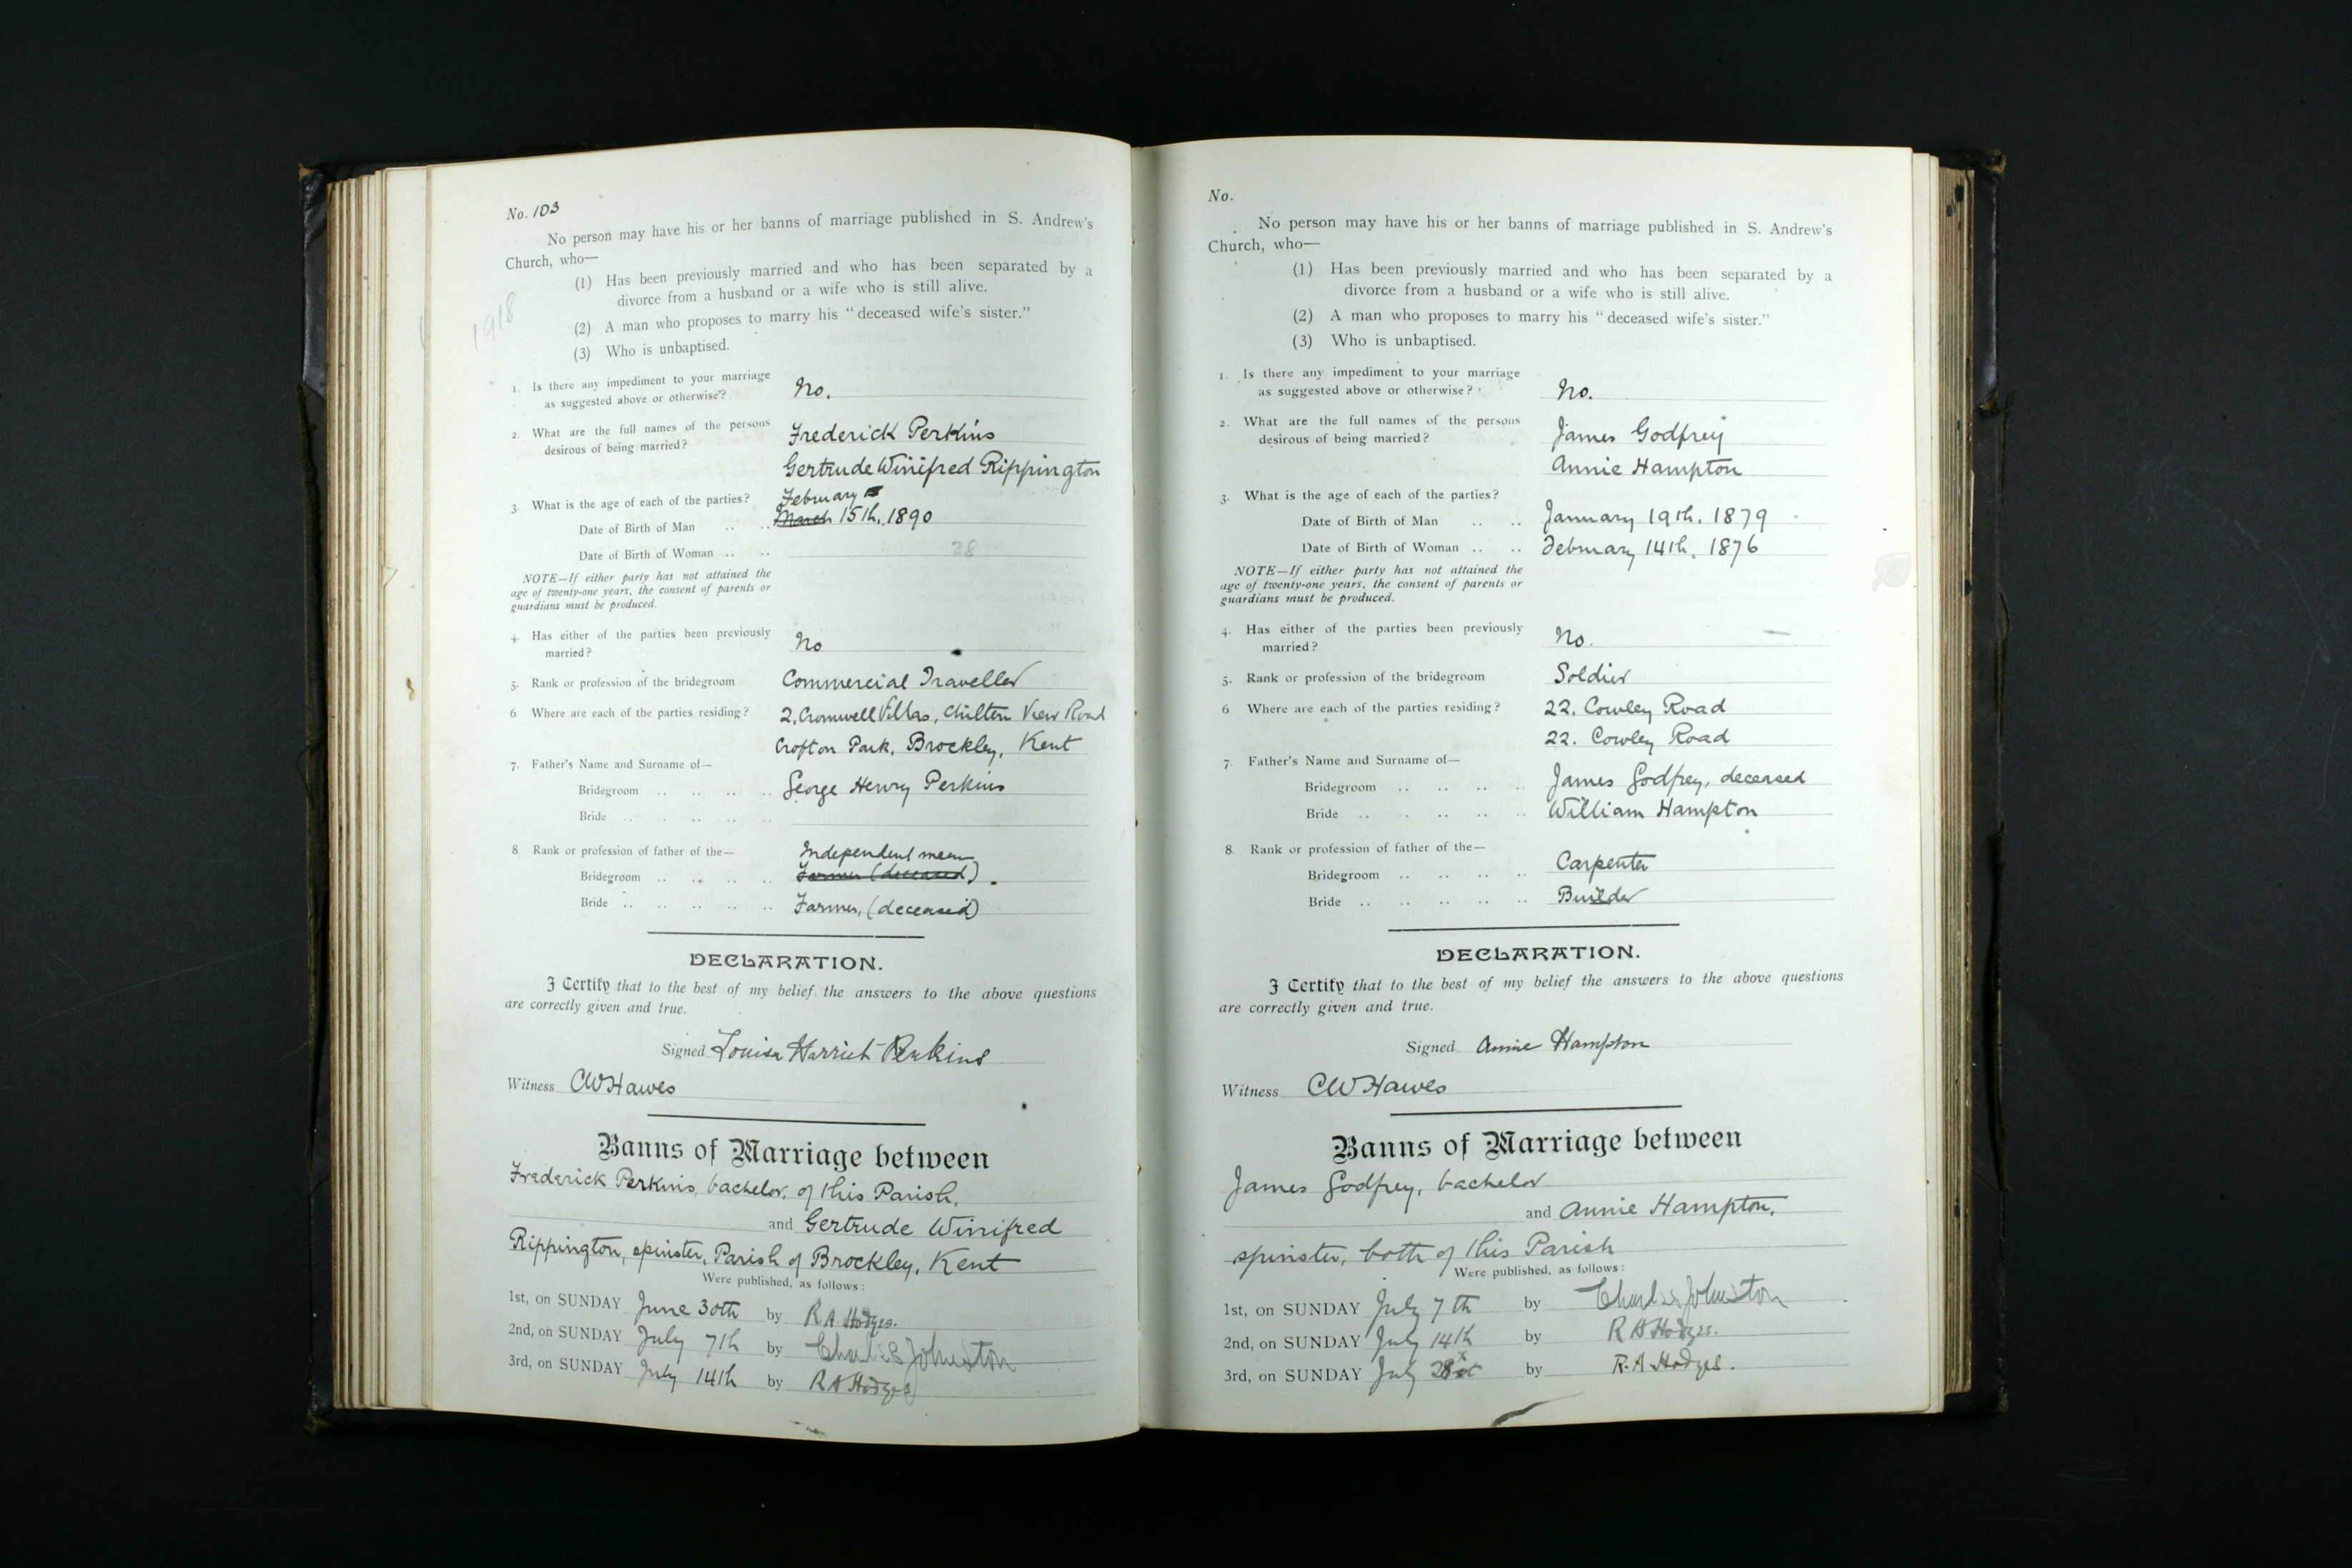 No. 103
No person may have his or her banns of marriage published in S. Andrew's
Church, who—
(1) Has been previously married and who has been separated by a
divorce from a husband or a wife who is still alive.
1918
(2) A man who proposes to marry his "deceased wife's sister."
(3) Who is unbaptised.
1. Is there any impediment to your marriage
as suggested above or otherwise? No.
2. What are the full names of the persons
desirous of being married? Frederick Perkins
Gertrude Winifred Rippington
3. What is the age of each of the parties? February
Date of Birth of Man .. .. March 15th, 1890
Date of Birth of Woman .. .. 28
NOTE—If either party has not attained the
age of twenty-one years, the consent of parents or
guardians must be produced.
4. Has either of the parties been previously
married? No
5. Rank or profession of the bridegroom Commercial Traveller
6 Where are each of the parties residing? 2, Cromwell Villas, Chiltern View Road
Crofton Park, Brockley, Kent
7. Father's Name and Surname of—
Bridegroom .. .. .. .. George Henry Perkins
Bride .. .. .. .. ..
8. Rank or profession of father of the— Independent mean
Bridegroom .. .. .. .. Farmer (deceased).
Bride .. .. .. .. .. Farmer, (deceased)
DECLARATION.
I Certify that to the best of my belief the answers to the above questions
are correctly given and true.
Signed Louisa Harriet Perkins
Witness CW Hawes
Banns of Marriage between
Frederick Perkins, bachelor, of this Parish,
and Gertrude Winifred
Rippington, spinster, Parish of Brockley, Kent
Were published, as follows:
1st, on SUNDAY June 30th by R A Hodges.
2nd, on SUNDAY July 7th by Charles Johnston
3rd, on SUNDAY July 14th by R A Hodges
No.
No person may have his or her banns of marriage published in S. Andrew's
Church, who—
(1) Has been previously married and who has been separated by a
divorce from a husband or a wife who is still alive.
(2) A man who proposes to marry his "deceased wife's sister."
(3) Who is unbaptised.
1. Is there any impediment to your marriage
as suggested above or otherwise? No.
2. What are the full names of the persons
desirous of being married? James Godfrey
Annie Hampton
3. What is the age of each of the parties?
Date of Birth of Man .. .. January 19th, 1879
Date of Birth of Woman .. .. February 14th, 1876
NOTE—If either party has not attained the
age of twenty-one years, the consent of parents or
guardians must be produced.
4. Has either of the parties been previously
married? No.
5. Rank or profession of the bridegroom Soldier
6 Where are each of the parties residing? 22, Cowley Road
22. Cowley Road
7. Father's Name and Surname of—
Bridegroom .. .. .. .. James Godfrey, deceased
Bride .. .. .. .. .. William Hampton
8. Rank or profession of father of the—
Bridegroom .. .. .. .. Carpenter
Bride .. .. .. .. .. Builder
DECLARATION.
I Certify that to the best of my belief the answers to the above questions
are correctly given and true.
Signed Annie Hampton
Witness CW Hawes
Banns of Marriage between
James Godfrey, bachelor
and Annie Hampton,
spinster, both of this Parish
Were published, as follows:
1st, on SUNDAY July 7th by Charles Johnston
2nd, on SUNDAY July 14th by R A Hodges.
3rd, on SUNDAY July 28 by R. A Hodges.